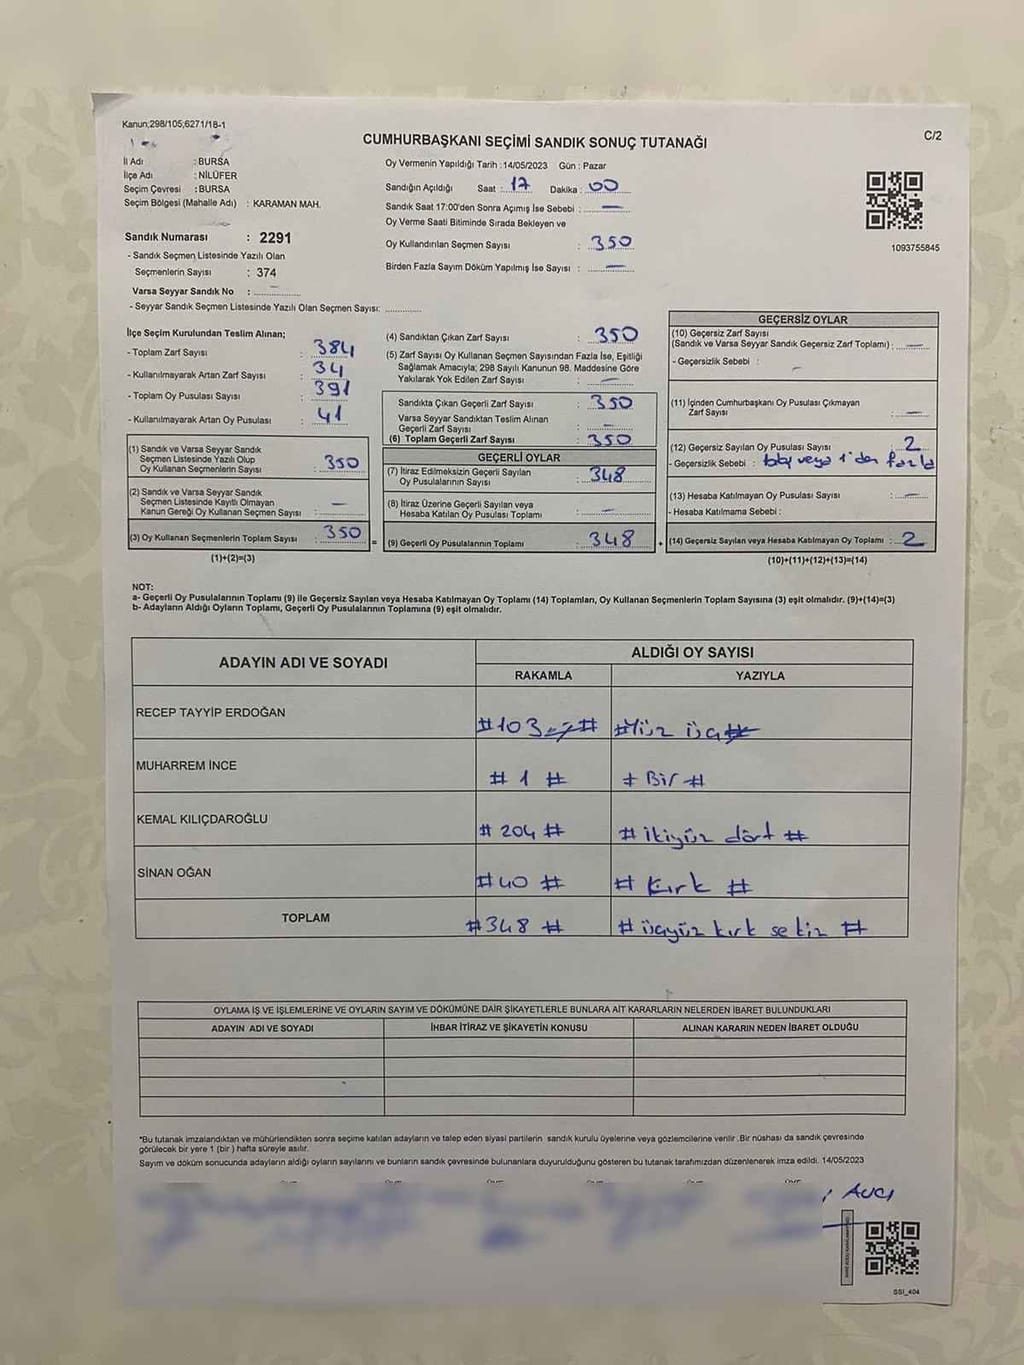 Kanun;298/105;6271/18-1
CUMHURBAŞKANI SEÇİMİ SANDIK SONUÇ TUTANAĞI
C/2
İl Adı : BURSA
İlçe Adı : NİLÜFER
Seçim Çevresi : BURSA
Seçim Bölgesi (Mahalle Adı) : KARAMAN MAH.
Sandık Numarası : 2291
- Sandık Seçmen Listesinde Yazılı Olan
Seçmenlerin Sayısı : 374
Varsa Seyyar Sandık No :
- Seyyar Sandık Seçmen Listesinde Yazılı Olan Seçmen Sayısı:
Oy Vermenin Yapıldığı Tarih : 14/05/2023 Gün : Pazar
Sandığın Açıldığı Saat : 17 Dakika : 00
Sandık Saat 17:00'den Sonra Açımış İse Sebebi : —
Oy Verme Saati Bitiminde Sırada Bekleyen ve
Oy Kullandırılan Seçmen Sayısı : 350
Birden Fazla Sayım Döküm Yapılmış İse Sayısı : —
1093755845
İlçe Seçim Kurulundan Teslim Alınan;
- Toplam Zarf Sayısı : 384
- Kullanılmayarak Artan Zarf Sayısı : 34
- Toplam Oy Pusulası Sayısı : 391
- Kullanılmayarak Artan Oy Pusulası : 41
(1) Sandık ve Varsa Seyyar Sandık
Seçmen Listesinde Yazılı Olup
Oy Kullanan Seçmenlerin Sayısı : 350
(2) Sandık ve Varsa Seyyar Sandık
Seçmen Listesinde Kayıtlı Olmayan
Kanun Gereği Oy Kullanan Seçmen Sayısı : —
(3) Oy Kullanan Seçmenlerin Toplam Sayısı : 350
(1)+(2)=(3)
(4) Sandıktan Çıkan Zarf Sayısı : 350
(5) Zarf Sayısı Oy Kullanan Seçmen Sayısından Fazla İse, Eşitliği
Sağlamak Amacıyla; 298 Sayılı Kanunun 98. Maddesine Göre
Yakılarak Yok Edilen Zarf Sayısı : —
Sandıkta Çıkan Geçerli Zarf Sayısı : 350
Varsa Seyyar Sandıktan Teslim Alınan
Geçerli Zarf Sayısı : —
(6) Toplam Geçerli Zarf Sayısı : 350
GEÇERLİ OYLAR
(7) İtiraz Edilmeksizin Geçerli Sayılan
Oy Pusulalarının Sayısı : 348
(8) İtiraz Üzerine Geçerli Sayılan veya
Hesaba Katılan Oy Pusulası Toplamı : —
(9) Geçerli Oy Pusulalarının Toplamı : 348
GEÇERSİZ OYLAR
(10) Geçersiz Zarf Sayısı
(Sandık ve Varsa Seyyar Sandık Geçersiz Zarf Toplamı) : —
- Geçersizlik Sebebi : —
(11) İçinden Cumhurbaşkanı Oy Pusulası Çıkmayan
Zarf Sayısı : —
(12) Geçersiz Sayılan Oy Pusulası Sayısı : 2
- Geçersizlik Sebebi : veya 1'den fazla
(13) Hesaba Katılmayan Oy Pusulası Sayısı : —
- Hesaba Katılmama Sebebi :
(14) Geçersiz Sayılan veya Hesaba Katılmayan Oy Toplamı : 2
(10)+(11)+(12)+(13)=(14)
NOT:
a- Geçerli Oy Pusulalarının Toplamı (9) ile Geçersiz Sayılan veya Hesaba Katılmayan Oy Toplamı (14) Toplamları, Oy Kullanan Seçmenlerin Toplam Sayısına (3) eşit olmalıdır. (9)+(14)=(3)
b- Adayların Aldığı Oyların Toplamı, Geçerli Oy Pusulalarının Toplamına (9) eşit olmalıdır.
ADAYIN ADI VE SOYADI
ALDIĞI OY SAYISI
RAKAMLA YAZIYLA
RECEP TAYYİP ERDOĞAN #103# #Yüz üç#
MUHARREM İNCE # 1 # # Bir #
KEMAL KILIÇDAROĞLU # 204 # # ikiyüz dört #
SİNAN OĞAN #40 # # Kırk #
TOPLAM #348 # # üçyüz kırk sekiz #
OYLAMA İŞ VE İŞLEMLERİNE VE OYLARIN SAYIM VE DÖKÜMÜNE DAİR ŞİKAYETLERLE BUNLARA AİT KARARLARIN NELERDEN İBARET BULUNDUKLARI
ADAYIN ADI VE SOYADI İHBAR İTİRAZ VE ŞİKAYETİN KONUSU ALINAN KARARIN NEDEN İBARET OLDUĞU
*Bu tutanak imzalandıktan ve mühürlendikten sonra seçime katılan adayların ve talep eden siyasi partilerin sandık kurulu üyelerine veya gözlemcilerine verilir .Bir nüshası da sandık çevresinde
görülecek bir yere 1 (bir ) hafta süreyle asılır.
Sayım ve döküm sonucunda adayların aldığı oyların sayılarını ve bunların sandık çevresinde bulunanlara duyurulduğunu gösteren bu tutanak tarafımızdan düzenlenerek imza edildi. 14/05/2023
AVCI
SSI_404